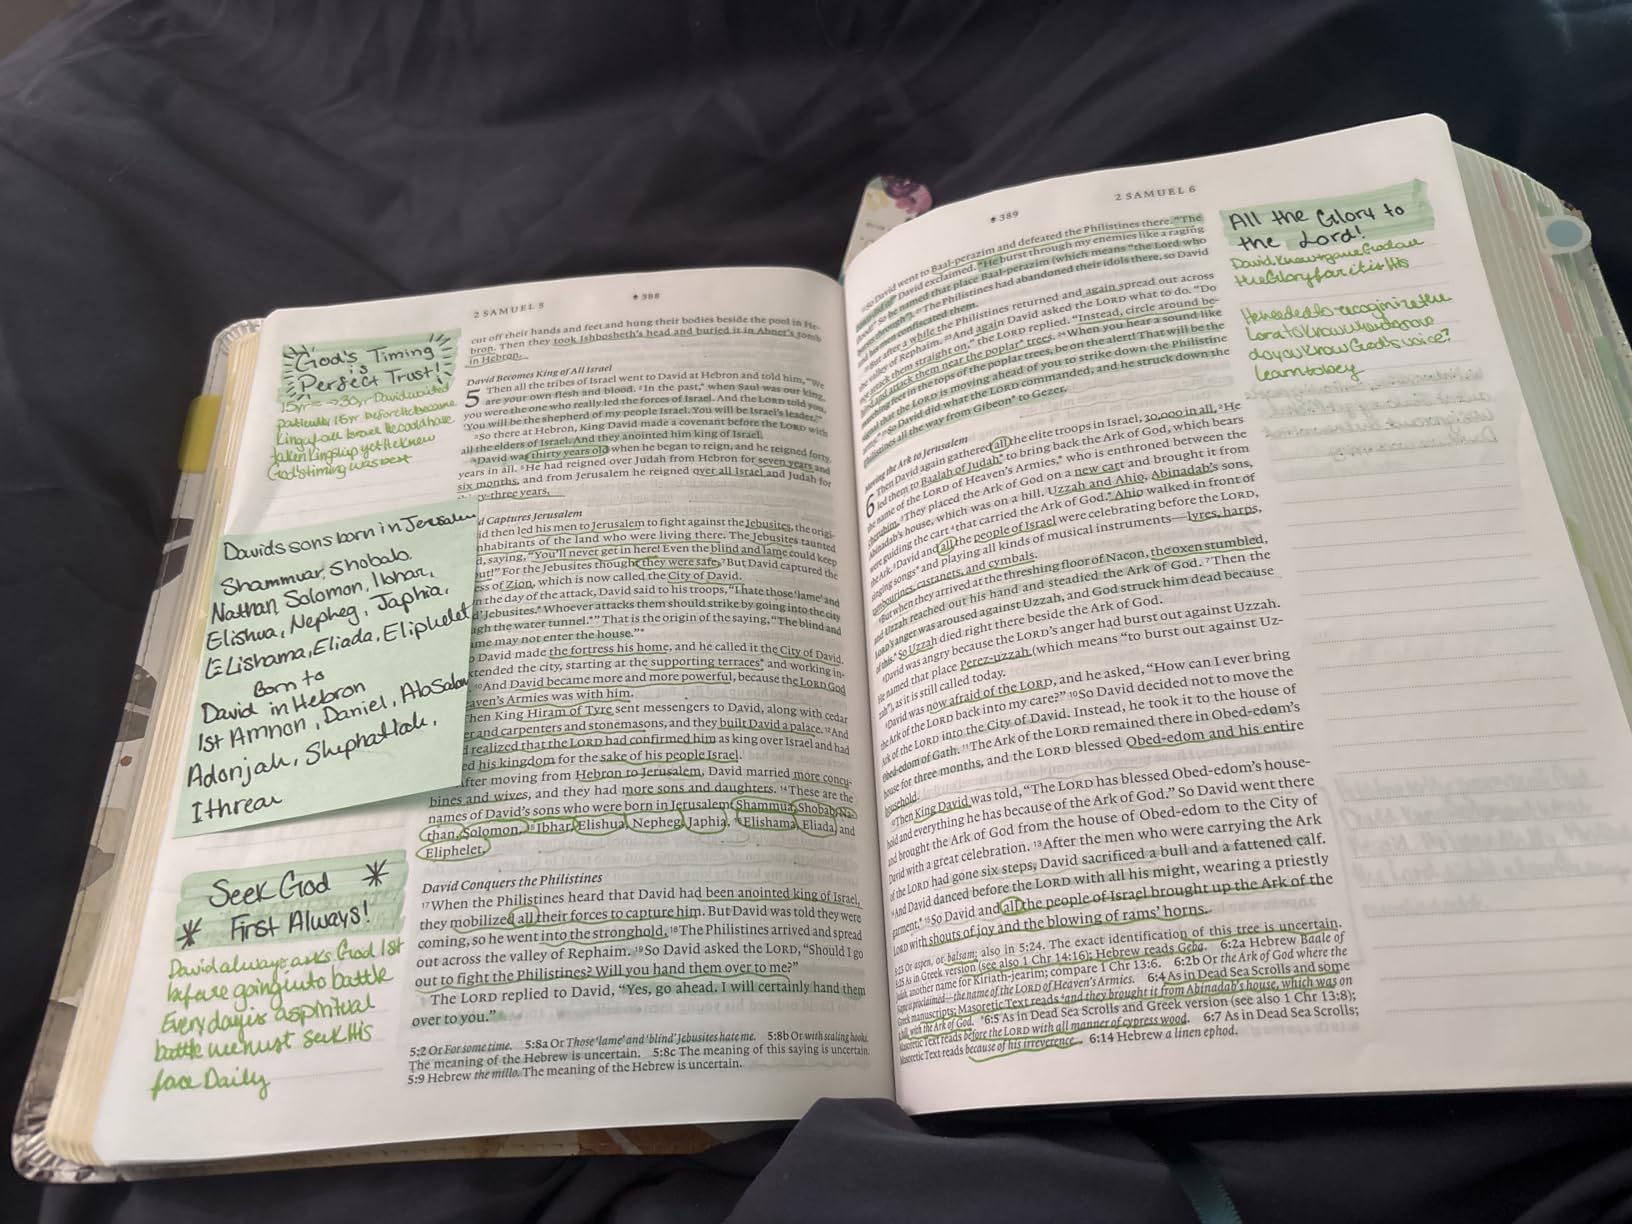 2 SAMUEL 5
388
God's Timing
is
Perfect Trust!
15yr → 30yr David waited
patiently 15yr before He became
King of all Israel He could have
taken Kingship yet He knew
God's timing was best
Davids sons born in Jerusalem
Shammuar, Shobab.
Nathan Solomon, Ibhar,
Elishua, Nepheg, Japhia,
Elishama, Eliada, Eliphelet
Born to
David in Hebron
1st Amnon, Daniel, Absalom
Adonjah, Shephatiah,
Ithream
Seek God
First Always!
David always asks God 1st
before going into battle
Every day is a spiritual
battle we must seek His
face Daily
cut off their hands and feet and hung their bodies beside the pool in He-
bron. Then they took Ishbosheth's head and buried it in Abner's tomb
in Hebron.
David Becomes King of All Israel
5 Then all the tribes of Israel went to David at Hebron and told him, "We
are your own flesh and blood. 2In the past,* when Saul was our king,
you were the one who really led the forces of Israel. And the LORD told you,
'You will be the shepherd of my people Israel. You will be Israel's leader.'"
3So there at Hebron, King David made a covenant before the LORD with
all the elders of Israel. And they anointed him king of Israel.
4David was thirty years old when he began to reign, and he reigned forty
years in all. 5He had reigned over Judah from Hebron for seven years and
six months, and from Jerusalem he reigned over all Israel and Judah for
y-three years.
d Captures Jerusalem
id then led his men to Jerusalem to fight against the Jebusites, the origi-
nhabitants of the land who were living there. The Jebusites taunted
d, saying, "You'll never get in here! Even the blind and lame could keep
out!" For the Jebusites thought they were safe. 7But David captured the
ess of Zion, which is now called the City of David.
n the day of the attack, David said to his troops, "I hate those 'lame' and
d' Jebusites.* Whoever attacks them should strike by going into the city
gh the water tunnel.*" That is the origin of the saying, "The blind and
ame may not enter the house."*
David made the fortress his home, and he called it the City of David.
tended the city, starting at the supporting terraces* and working in-
10And David became more and more powerful, because the LORD God
aven's Armies was with him.
hen King Hiram of Tyre sent messengers to David, along with cedar
er and carpenters and stonemasons, and they built David a palace. 12And
d realized that the LORD had confirmed him as king over Israel and had
ed his kingdom for the sake of his people Israel.
After moving from Hebron to Jerusalem, David married more concu-
bines and wives, and they had more sons and daughters. 14These are the
names of David's sons who were born in Jerusalem: Shammua, Shobab, Na-
than, Solomon, 15Ibhar, Elishua, Nepheg, Japhia, 16Elishama, Eliada, and
Eliphelet.
David Conquers the Philistines
17When the Philistines heard that David had been anointed king of Israel,
they mobilized all their forces to capture him. But David was told they were
coming, so he went into the stronghold. 18The Philistines arrived and spread
out across the valley of Rephaim. 19So David asked the LORD, "Should I go
out to fight the Philistines? Will you hand them over to me?"
The LORD replied to David, "Yes, go ahead. I will certainly hand them
over to you."
5:2 Or For some time. 5:8a Or Those 'lame' and 'blind' Jebusites hate me. 5:8b Or with scaling hooks.
The meaning of the Hebrew is uncertain. 5:8c The meaning of this saying is uncertain.
5:9 Hebrew the millo. The meaning of the Hebrew is uncertain.
389
2 SAMUEL 6
20So David went to Baal-perazim and defeated the Philistines there. "The
LORD did it!" David exclaimed. "He burst through my enemies like a raging
flood!" So he named that place Baal-perazim (which means "the Lord who
bursts through"). 21The Philistines had abandoned their idols there, so David
and his men confiscated them.
22But after a while the Philistines returned and again spread out across
the valley of Rephaim. 23And again David asked the LORD what to do. "Do
not attack them straight on," the LORD replied. "Instead, circle around be-
hind and attack them near the poplar* trees. 24When you hear a sound like
marching feet in the tops of the poplar trees, be on the alert! That will be the
signal that the LORD is moving ahead of you to strike down the Philistine
army." 25So David did what the LORD commanded, and he struck down the
Philistines all the way from Gibeon* to Gezer.
Moving the Ark to Jerusalem
6 Then David again gathered all the elite troops in Israel, 30,000 in all. 2He
led them to Baalah of Judah* to bring back the Ark of God, which bears
the name of the LORD of Heaven's Armies,* who is enthroned between the
cherubim. 3They placed the Ark of God on a new cart and brought it from
Abinadab's house, which was on a hill. Uzzah and Ahio, Abinadab's sons,
were guiding the cart 4that carried the Ark of God.* Ahio walked in front of
the Ark. 5David and all the people of Israel were celebrating before the LORD,
singing songs* and playing all kinds of musical instruments—lyres, harps,
tambourines, castanets, and cymbals.
6But when they arrived at the threshing floor of Nacon, the oxen stumbled,
and Uzzah reached out his hand and steadied the Ark of God. 7Then the
LORD's anger was aroused against Uzzah, and God struck him dead because
of this.* So Uzzah died right there beside the Ark of God.
8David was angry because the LORD's anger had burst out against Uzzah.
He named that place Perez-uzzah (which means "to burst out against Uz-
zah"), as it is still called today.
9David was now afraid of the LORD, and he asked, "How can I ever bring
the Ark of the LORD back into my care?" 10So David decided not to move the
Ark of the LORD into the City of David. Instead, he took it to the house of
Obed-edom of Gath. 11The Ark of the LORD remained there in Obed-edom's
house for three months, and the LORD blessed Obed-edom and his entire
household.
12Then King David was told, "The LORD has blessed Obed-edom's house-
hold and everything he has because of the Ark of God." So David went there
and brought the Ark of God from the house of Obed-edom to the City of
David with a great celebration. 13After the men who were carrying the Ark
of the LORD had gone six steps, David sacrificed a bull and a fattened calf.
14And David danced before the LORD with all his might, wearing a priestly
garment.* 15So David and all the people of Israel brought up the Ark of the
LORD with shouts of joy and the blowing of rams' horns.
5:23 Or aspen, or balsam; also in 5:24. The exact identification of this tree is uncertain.
5:25 As in Greek version (see also 1 Chr 14:16); Hebrew reads Geba. 6:2a Hebrew Baale of
Judah, another name for Kiriath-jearim; compare 1 Chr 13:6. 6:2b Or the Ark of God where the
Name is proclaimed—the name of the LORD of Heaven's Armies. 6:4 As in Dead Sea Scrolls and some
Greek manuscripts; Masoretic Text reads and they brought it from Abinadab's house, which was on
a hill, with the Ark of God. 6:5 As in Dead Sea Scrolls and Greek version (see also 1 Chr 13:8);
Masoretic Text reads before the LORD with all manner of cypress wood. 6:7 As in Dead Sea Scrolls;
Masoretic Text reads because of his irreverence. 6:14 Hebrew a linen ephod.
All the Glory to
the Lord!
David Know + gave God all
the Glory for it is His
He needed to recoginize the
Lord to Know who's voice
do you Know God's voice?
Learn to obey